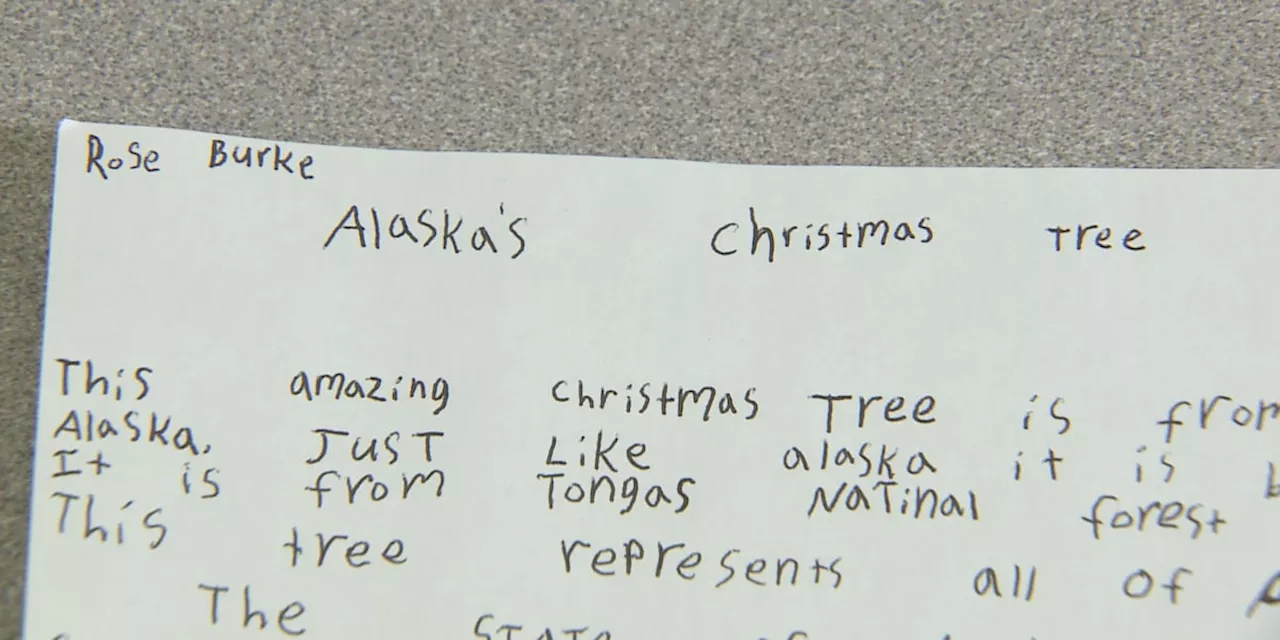 Rose Burke
Alaska's Christmas Tree
This amazing christmas Tree is from
Alaska, Just Like alaska it is
It is from Tongas NaTinal forest
This tree represents all of
The STATE of